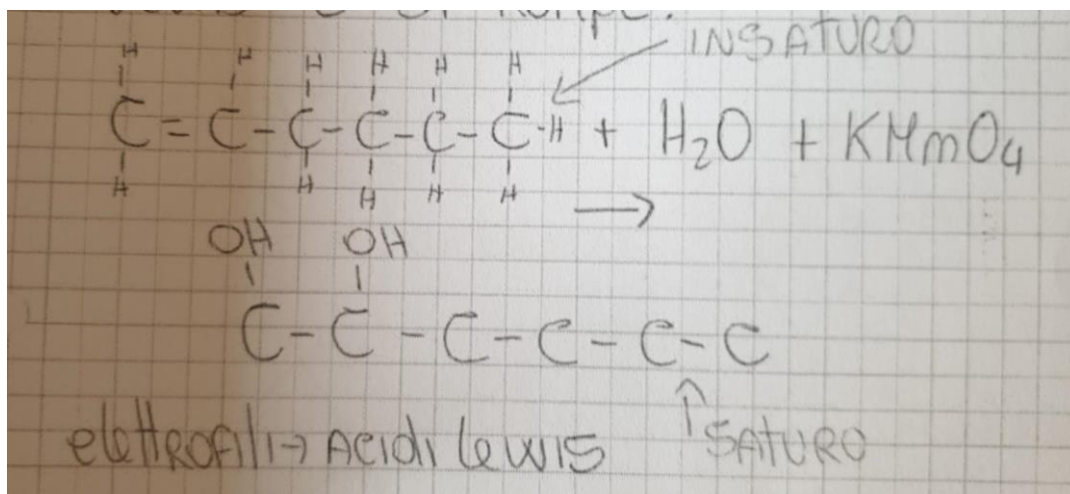 INSATURO
H H H H H H
C = C - C - C - C - C - H + H2O + KMnO4
H H H H H
→
OH OH
C - C - C - C - C - C
elettrofili → Acidi Lewis
SATURO